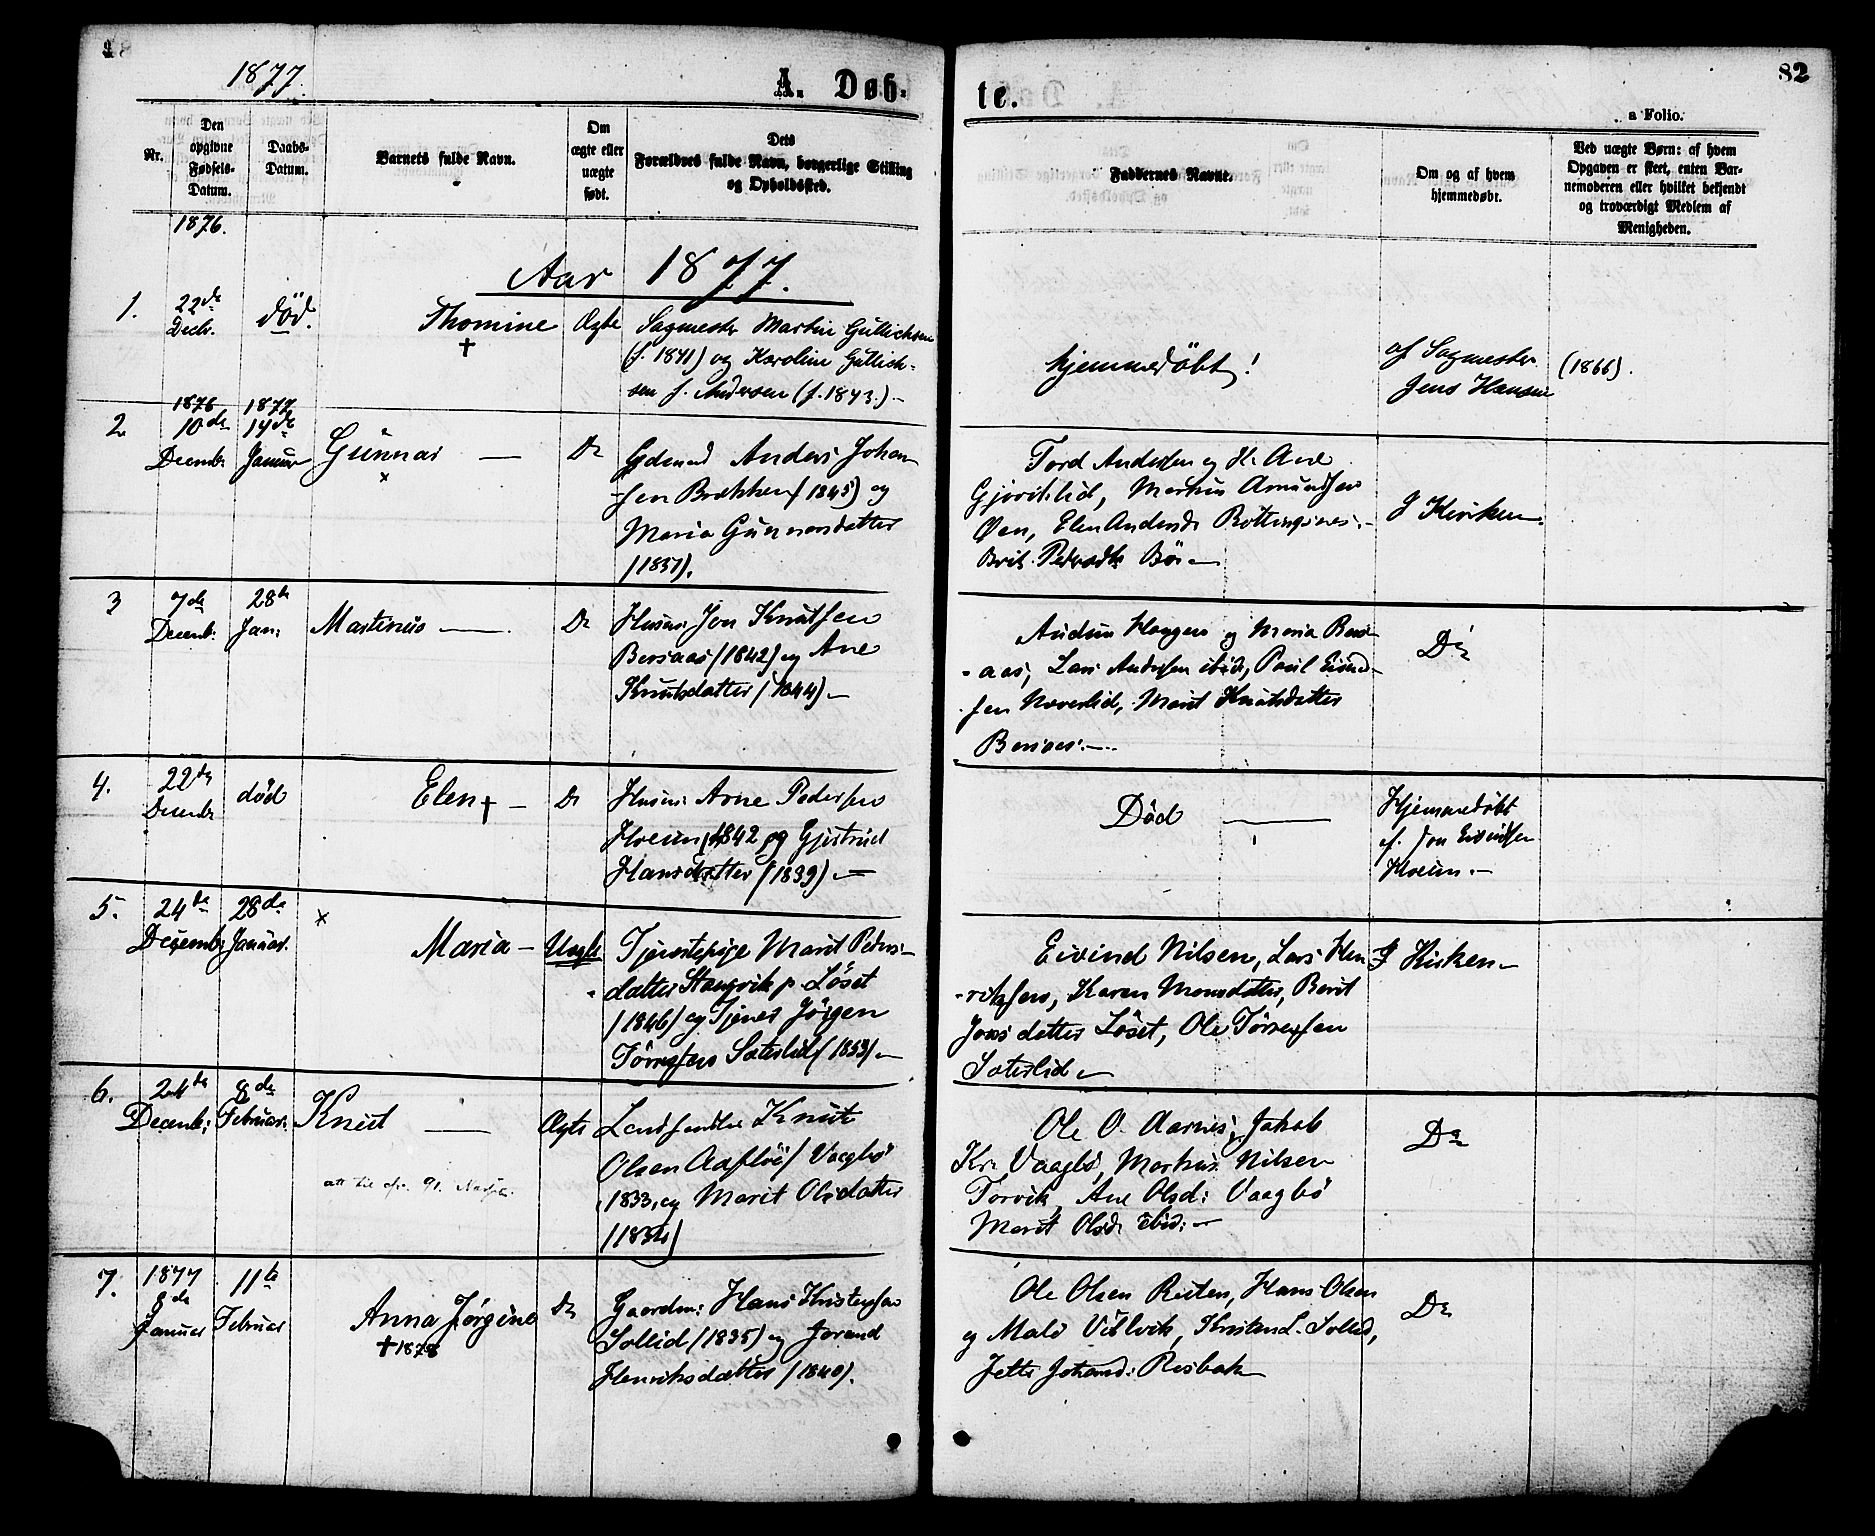 1877.
A. Døb-
te.
82
a Folio.
Nr.
Den
opgivne
Fødsels-
Datum.
Daabs-
Datum.
Barnets fulde Navn.
Om
ægte eller
uægte
født.
Dets
Forældres fulde Navn, borgerlige Stilling
og Opholdssted.
Faddernes Navne.
Om og af hvem
hjemmedøbt.
Ved uægte Børn: af hvem
Opgaven er skeet, enten Bar-
nemoderen eller hvilket bekjendt
og troværdigt Medlem af
Menigheden.
1876.
Aar 1877.
1.
22de
Decb.
död.
Thomine
†
Ægte
Sagmester Martin Gullichsen
(f. 1841) og Karoline Gullich-
sen f. Andersen (f. 1843.) –
hjemmedöbt!
af Sagmester
Jens Hansen
(1866).
2.
1876
10de
Decembr
1877
14de
Januar
Gunnar —
×
Do
Gdmand Anders Johan-
sen Brækken (1845) og
Maria Gunnarsdatter
(1837).
Tord Andersen og H. Ane
Gjøvikslid, Markus Amundsen
Øen, Elen Andersd.
Brit Pedersdtr Bör –
I Kirken.
3
7de
Decemb:
28de
Jan:
Martinus —
Do
Husm: Jon Knutsen
Bersaas (1842) og Ane
Knutsdatter (1844) –
Audun Haagen og Maria Bers-
aas, Lars Andersen ibid, Poul Eivind-
sen Noverlid, Marit Knutsdatter
Bersaas. –
Do
4.
22de
Decembr
død
Elen † –
Do
Husm: Arne Pedersen
Hoeim (1842 og Gjertrud
Hansdatter (1839) –
Død —
Hjemmedöbt
af Jon Eivindsen
Hoeim. –
5.
24de
Decemb:
28de
Januar.
×
Maria –
Uægte
Tjenestepige Marit Peders-
datter Stangvik p. Löset
(1846) og Tjener Jörgen
Törresen Sæterlid (1853) –
Eivind Nilsen, Lars Hen-
riksen, Karen Monsdatter, Berit
Jonsdatter Löset, Ole Törresen
Sæterlid –
I Kirken –
6.
24de
Decemb:
8de
Februar.
Knut —
Ægte
Landhandler Knut
Olsen Aaflöi / Vaagbö
1833, og Marit Olsdatter
(1834)
Ole O. Aarnes, Jakob
Kr. Vaagbö, Markus Nilsen
Torvik, Ane Olsd: Vaagbö
Marit Olsd. ibid: –
Do
7.
1877
8de
Januar
11te
Februar
Anna Jørgine
† 1878
Do
Gaardm: Hans Kristensen
Sollid (1835) og Jorand
Henriksdatter (1840).
Ole Olsen Reiten, Hans Olsen
og Malo Visvik, Kristen L. Sollid,
Jette Johansd: Risbak
Do